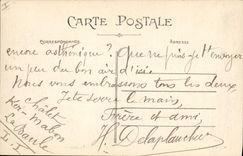 CARTE POSTALE
CORRESPONDANCE
ADRESSE
encore asthénique? Que ne puis-je t'envoyer
un peu du bon air d'ici
Nous vous embrassons tous les deux
Je te serre la main,
Frère et ami,
H. Delaplanche
Châlet
Ker-Mabon
La Baule
L. I